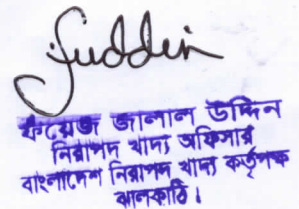 fuddin
ফয়েজ জালাল উদ্দিন
নিরাপদ খাদ্য অফিসার
বাংলাদেশ নিরাপদ খাদ্য কর্তৃপক্ষ
ঝালকাঠি।